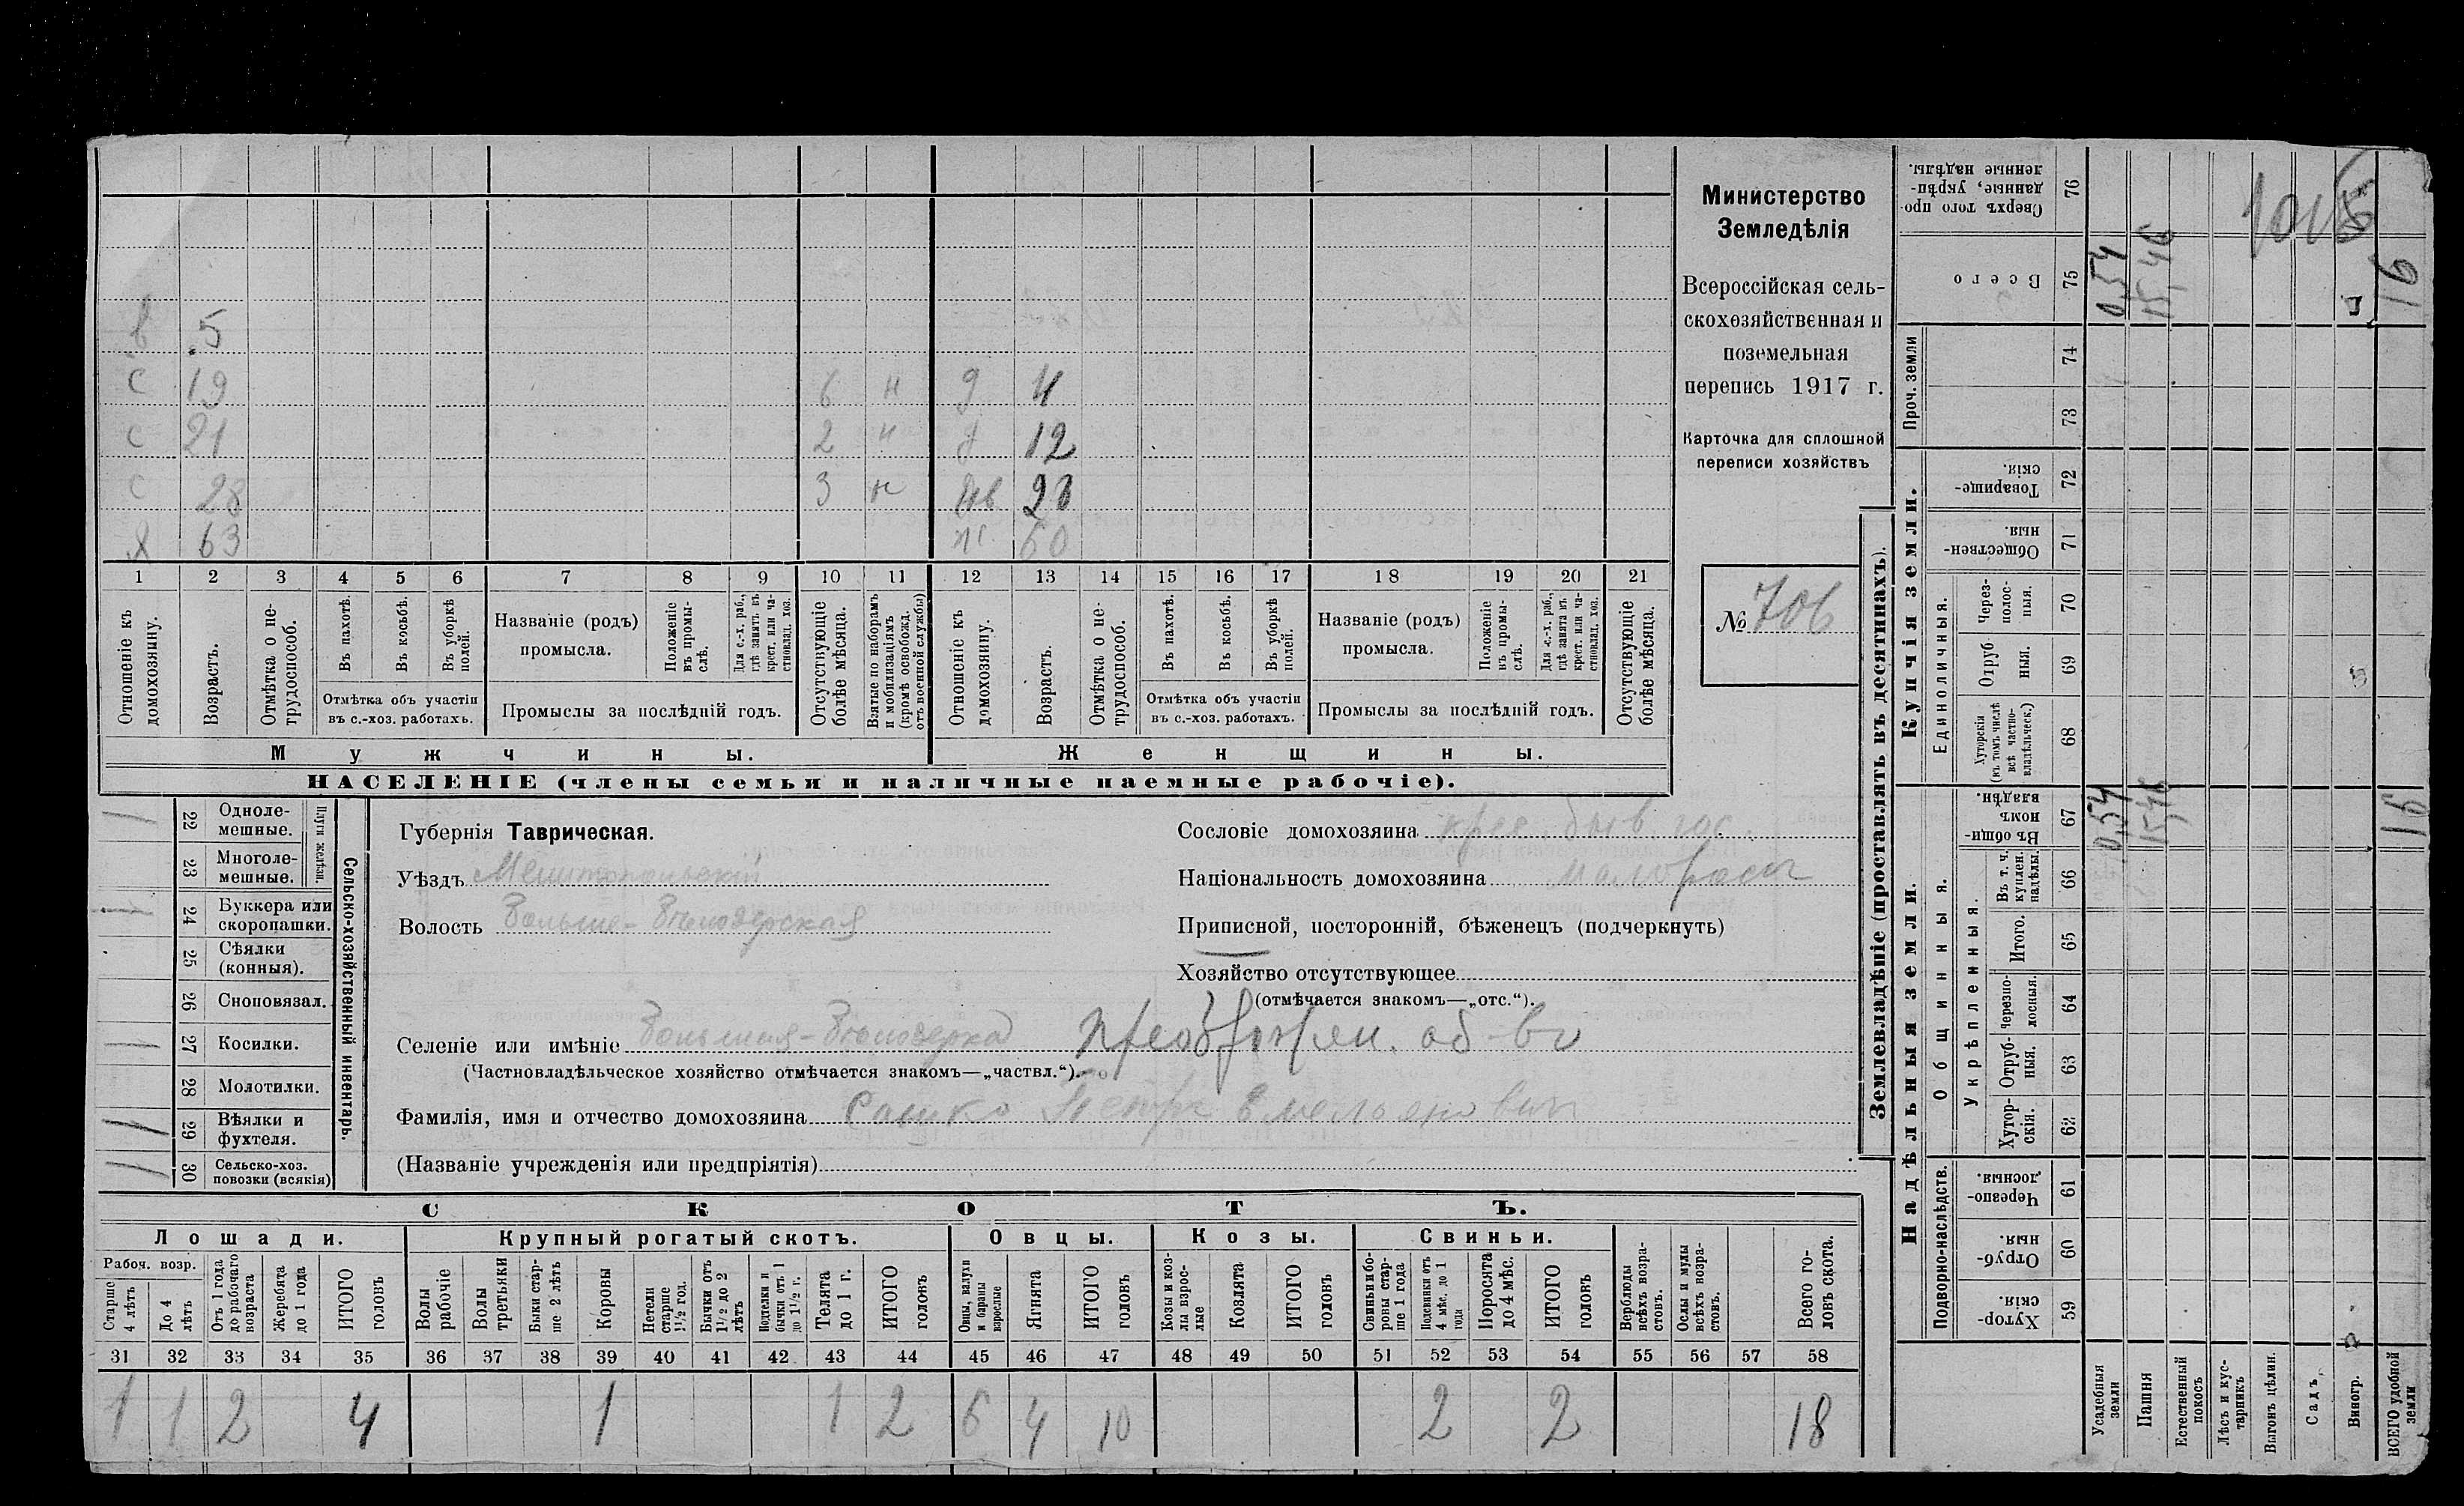 Министерство
Земледѣлія
Всероссійская сель-
скохозяйственная и
поземельная
перепись 1917 г.
Карточка для сплошной
переписи хозяйствъ
№ 706
5
с 19 6 н д 4
с 21 2 н д 12
с 28 3 н
х 63 ж 60
1 2 3 4 5 6 7 8 9 10 11 12 13 14 15 16 17 18 19 20 21
Отношеніе къ домохозяину.
Возрастъ.
Отмѣтка о не-трудоспособ.
Въ пахотѣ.
Въ косьбѣ.
Въ уборкѣ полей.
Отмѣтка объ участіи
въ с.-хоз. работахъ.
Названіе (родъ)
промысла.
Положеніе въ промы-слѣ.
Для с.-х. раб., гдѣ занятъ въ крест. или ча-стновлад. хоз.
Промыслы за послѣдній годъ.
Отсутствующіе болѣе мѣсяца.
Взятые по наборамъ и мобилизаціямъ (кромѣ освобожд. отъ военной службы)
Отношеніе къ домохозяину.
Возрастъ.
Отмѣтка о не-трудоспособ.
Въ пахотѣ.
Въ косьбѣ.
Въ уборкѣ полей.
Отмѣтка объ участіи
въ с.-хоз. работахъ.
Названіе (родъ)
промысла.
Положеніе въ промы-слѣ.
Для с.-х. раб., гдѣ занята въ крест. или ча-стновлад. хоз.
Промыслы за послѣдній годъ.
Отсутствующіе болѣе мѣсяца.
Мужчины. Женщины.
НАСЕЛЕНІЕ (члены семьи и наличные наемные рабочіе).
Сельско-хозяйственный инвентарь.
Плуги желѣзн.
1 22 Одноле-мешные.
23 Многоле-мешные.
1 24 Буккера или скоропашки.
25 Сѣялки (конныя).
26 Сноповязал.
1 27 Косилки.
28 Молотилки.
29 Вѣялки и фухтеля.
30 Сельско-хоз. повозки (всякія)
Губернія Таврическая.
Уѣздъ Мелитопольскій
Волость Больше-Бѣлозерская
Селеніе или имѣніе Большая-Бѣлозерка Преображен. об-во
(Частновладѣльческое хозяйство отмѣчается знакомъ—„частвл.“).
Фамилія, имя и отчество домохозяина Сашко Петръ Емельяновичъ
(Названіе учрежденія или предпріятія)
Сословіе домохозяина крес. быв. гос.
Національность домохозяина малоросс
Приписной, посторонній, бѣженецъ (подчеркнуть)
Хозяйство отсутствующее
(отмѣчается знакомъ—„отс.“).
СКОТЪ.
Лошади. Крупный рогатый скотъ. Овцы. Козы. Свиньи.
Рабоч. возр.
Старше 4 лѣтъ
До 4 лѣтъ
Отъ 1 года до рабочаго возраста
Жеребята до 1 года
ИТОГО головъ
Волы рабочіе
Волы третьяки
Быки стар-ше 2 лѣтъ
Коровы
Нетели старше 1½ год.
Бычки отъ 1½ до 2 лѣтъ
Подтелки и бычки отъ 1 до 1½ г.
Телята до 1 г.
ИТОГО головъ
Овцы, валухи и бараны взрослые
Ягнята
ИТОГО головъ
Козы и коз-лы взрос-лые
Козлята
ИТОГО головъ
Свиньи и бо-ровы стар-ше 1 года
Подсвинки отъ 4 мѣс. до 1 года
Поросята до 4 мѣс.
ИТОГО головъ
Верблюды всѣхъ возра-стовъ.
Ослы и мулы всѣхъ возра-стовъ.
Всего го-ловъ скота.
31 32 33 34 35 36 37 38 39 40 41 42 43 44 45 46 47 48 49 50 51 52 53 54 55 56 57 58
1 1 2 4 1 1 2 6 4 10 2 2 18
Землевладѣніе (проставлять въ десятинахъ).
Купчія земли.
Надѣльныя земли.
Сверхъ того про-данные, укрѣп-ленные надѣлы. 76
Всего 75 0,54 15,46 16
Проч. земли 74 73
Товарище-скія. 72
Обществен-ныя. 71
Единоличныя.
Через-полос-ныя. 70
Отруб-ныя. 69
Хуторскія (въ томъ числѣ всѣ частно-владѣльческ.) 68
Общинныя.
Въ общи-номъ владѣн. 67 0,54 15,46 16
Укрѣпленныя.
Въ т. ч. куплен. надѣлы. 66
Итого. 65
Черезпо-лосныя. 64
Отруб-ныя. 63
Хутор-скія. 62
Подворно-наслѣдств.
Черезпо-лосныя. 61
Отруб-ныя. 60
Хутор-скія. 59
Усадебныя земли
Пашня
Естественный покосъ
Лѣсъ и кус-тарникъ
Выгонъ цѣлин.
Садъ
Виногр.
ВСЕГО удобной земли